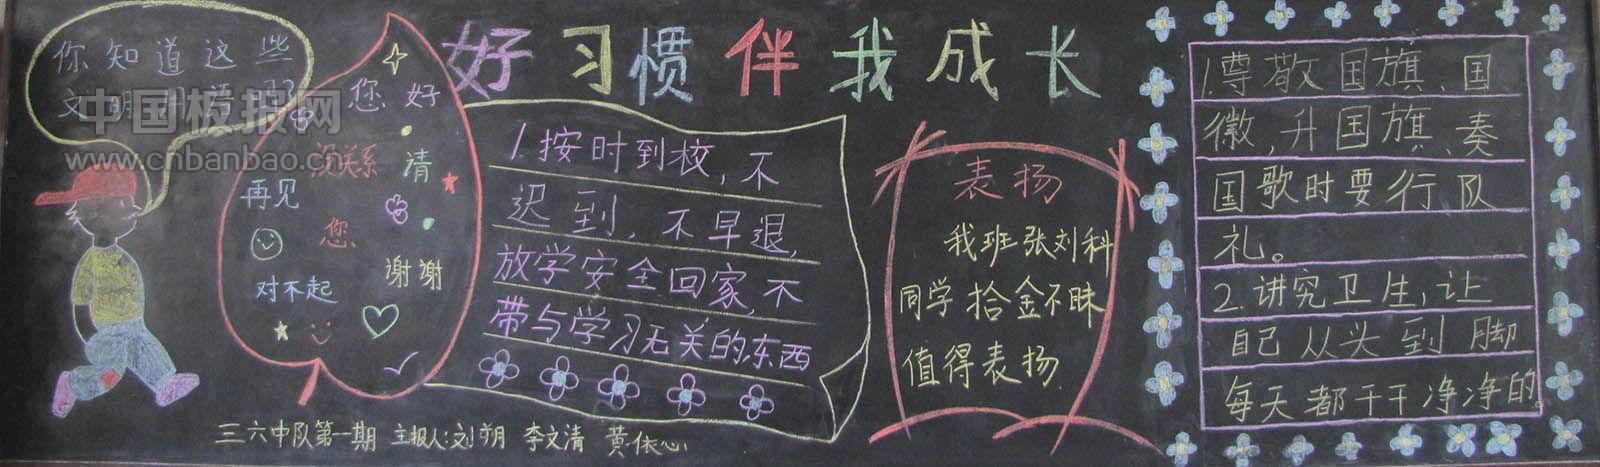 好习惯伴我成长
你知道这些
文明用语吗?
中国板报网
www.cnbanbao.cn
您好
请
没关系
再见
您
谢谢
对不起
1.按时到校,不
迟到,不早退,
放学安全回家,不
带与学习无关的东西
表扬
我班张刘科
同学拾金不昧
值得表扬
1.尊敬国旗、国
徽,升国旗、奏
国歌时要行队
礼。
2.讲究卫生,让
自己从头到脚
每天都干干净净的。
三六中队第一期 主报人:刘明 李文清 黄依心